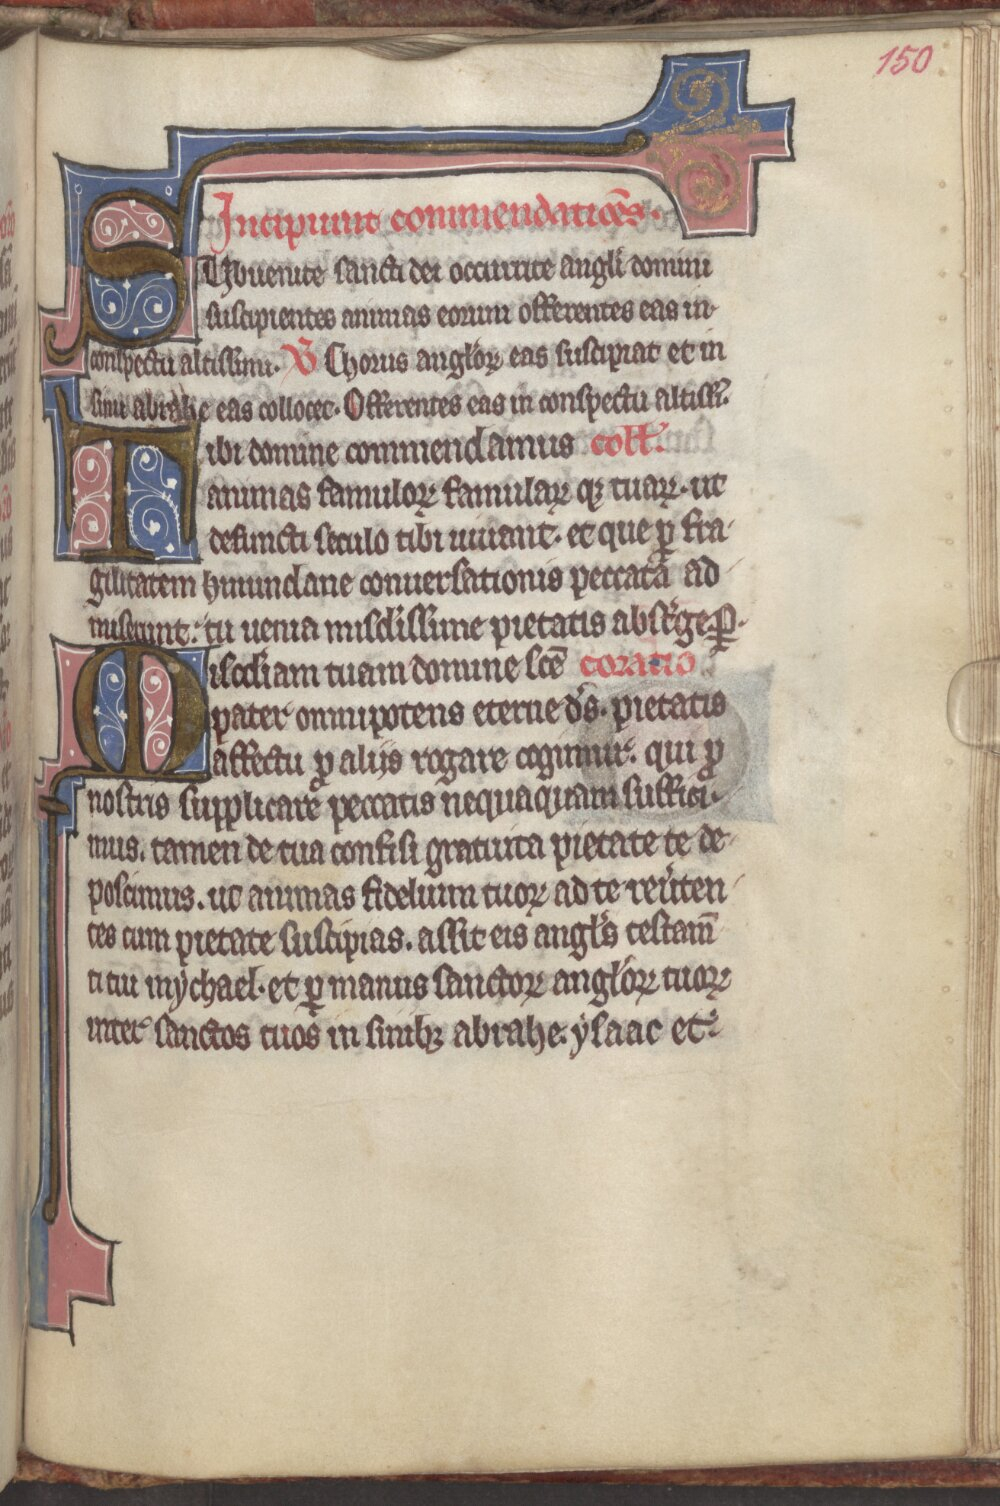 150
Incipiunt commendatiões.
Subuenite sancti dei occurrite angli domini
suscipientes animas eorum offerentes eas in
conspectu altissimi. ℣ Chorus anglorꝝ eas suscipiat et in
sinu abrahe eas collocet. Offerentes eas in conspectu altissi.
Tibi domine commendamus coll'.
animas famulorꝝ famularꝝ qꝫ tuarꝝ. ut
defuncti seculo tibi uiuant. et que ꝑ fra
gilitatem humundane conuersationis peccata ad
miserunt. tu uenia misclissime pietatis absterge. ꝑ.
Miscdiam tuam domine sce oratio
pater omnipotens eterne ds. pietatis
affectu ꝓ alijs rogare cogimur. qui ꝓ
nostris supplicare peccatis nequaquam suffici
mus. tamen de tua confisi gratuita pietate te de
poscimus. ut animas fidelium tuorꝝ ad te reuten
tes cum pietate suscipias. assit eis angls testam
ti tui mychael. et ꝑ manus sanctorꝝ anglorꝝ tuorꝝ
inter sanctos tuos in sinibꝫ abrahe. ysaac et